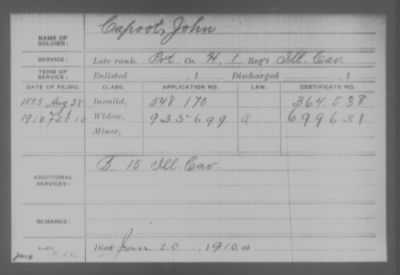 NAME OF SOLDIER: Capoot, John
SERVICE: Late rank, Pvt Co. H, 1 Reg't Ill. Cav.
TERM OF SERVICE: Enlisted , 1 Discharged , 1
DATE OF FILING. CLASS. APPLICATION NO. LAW. CERTIFICATE NO.
Aug 28 Invalid, 548 170 364.538
1910 Feb 10 Widow, 935699 699631
Minor,
ADDITIONAL SERVICES: 15 Ill. Cav.
REMARKS:
Died 20, 1910, at